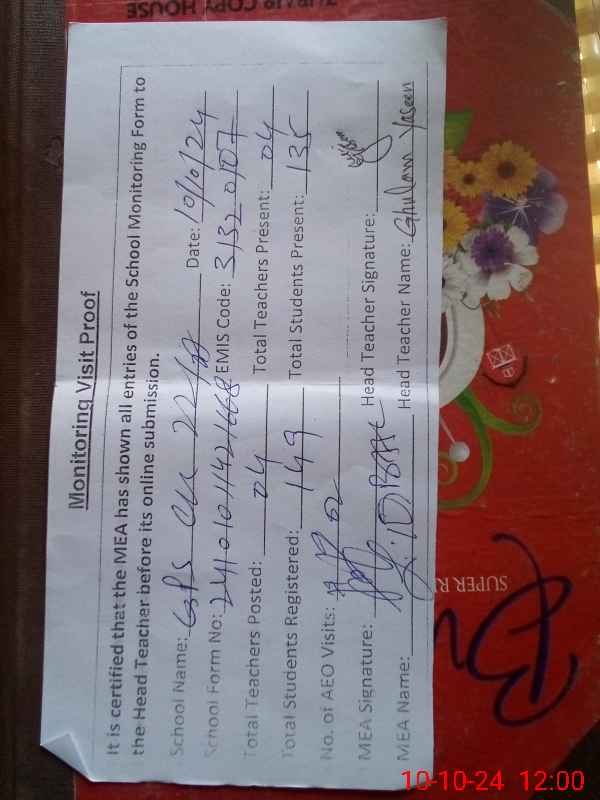 ZUBAIR COPY HOUSE
Monitoring Visit Proof
It is certified that the MEA has shown all entries of the School Monitoring Form to
the Head Teacher before its online submission.
School Name: GPS Date: 10/10/24
School Form No: EMIS Code: 31320107
Total Teachers Posted: 04 Total Teachers Present: 04
Total Students Registered: 149 Total Students Present: 135
No. of AEO Visits: 02
MEA Signature: Head Teacher Signature:
MEA Name: Head Teacher Name: Ghulam Yaseen
SUPER
10-10-24 12:00